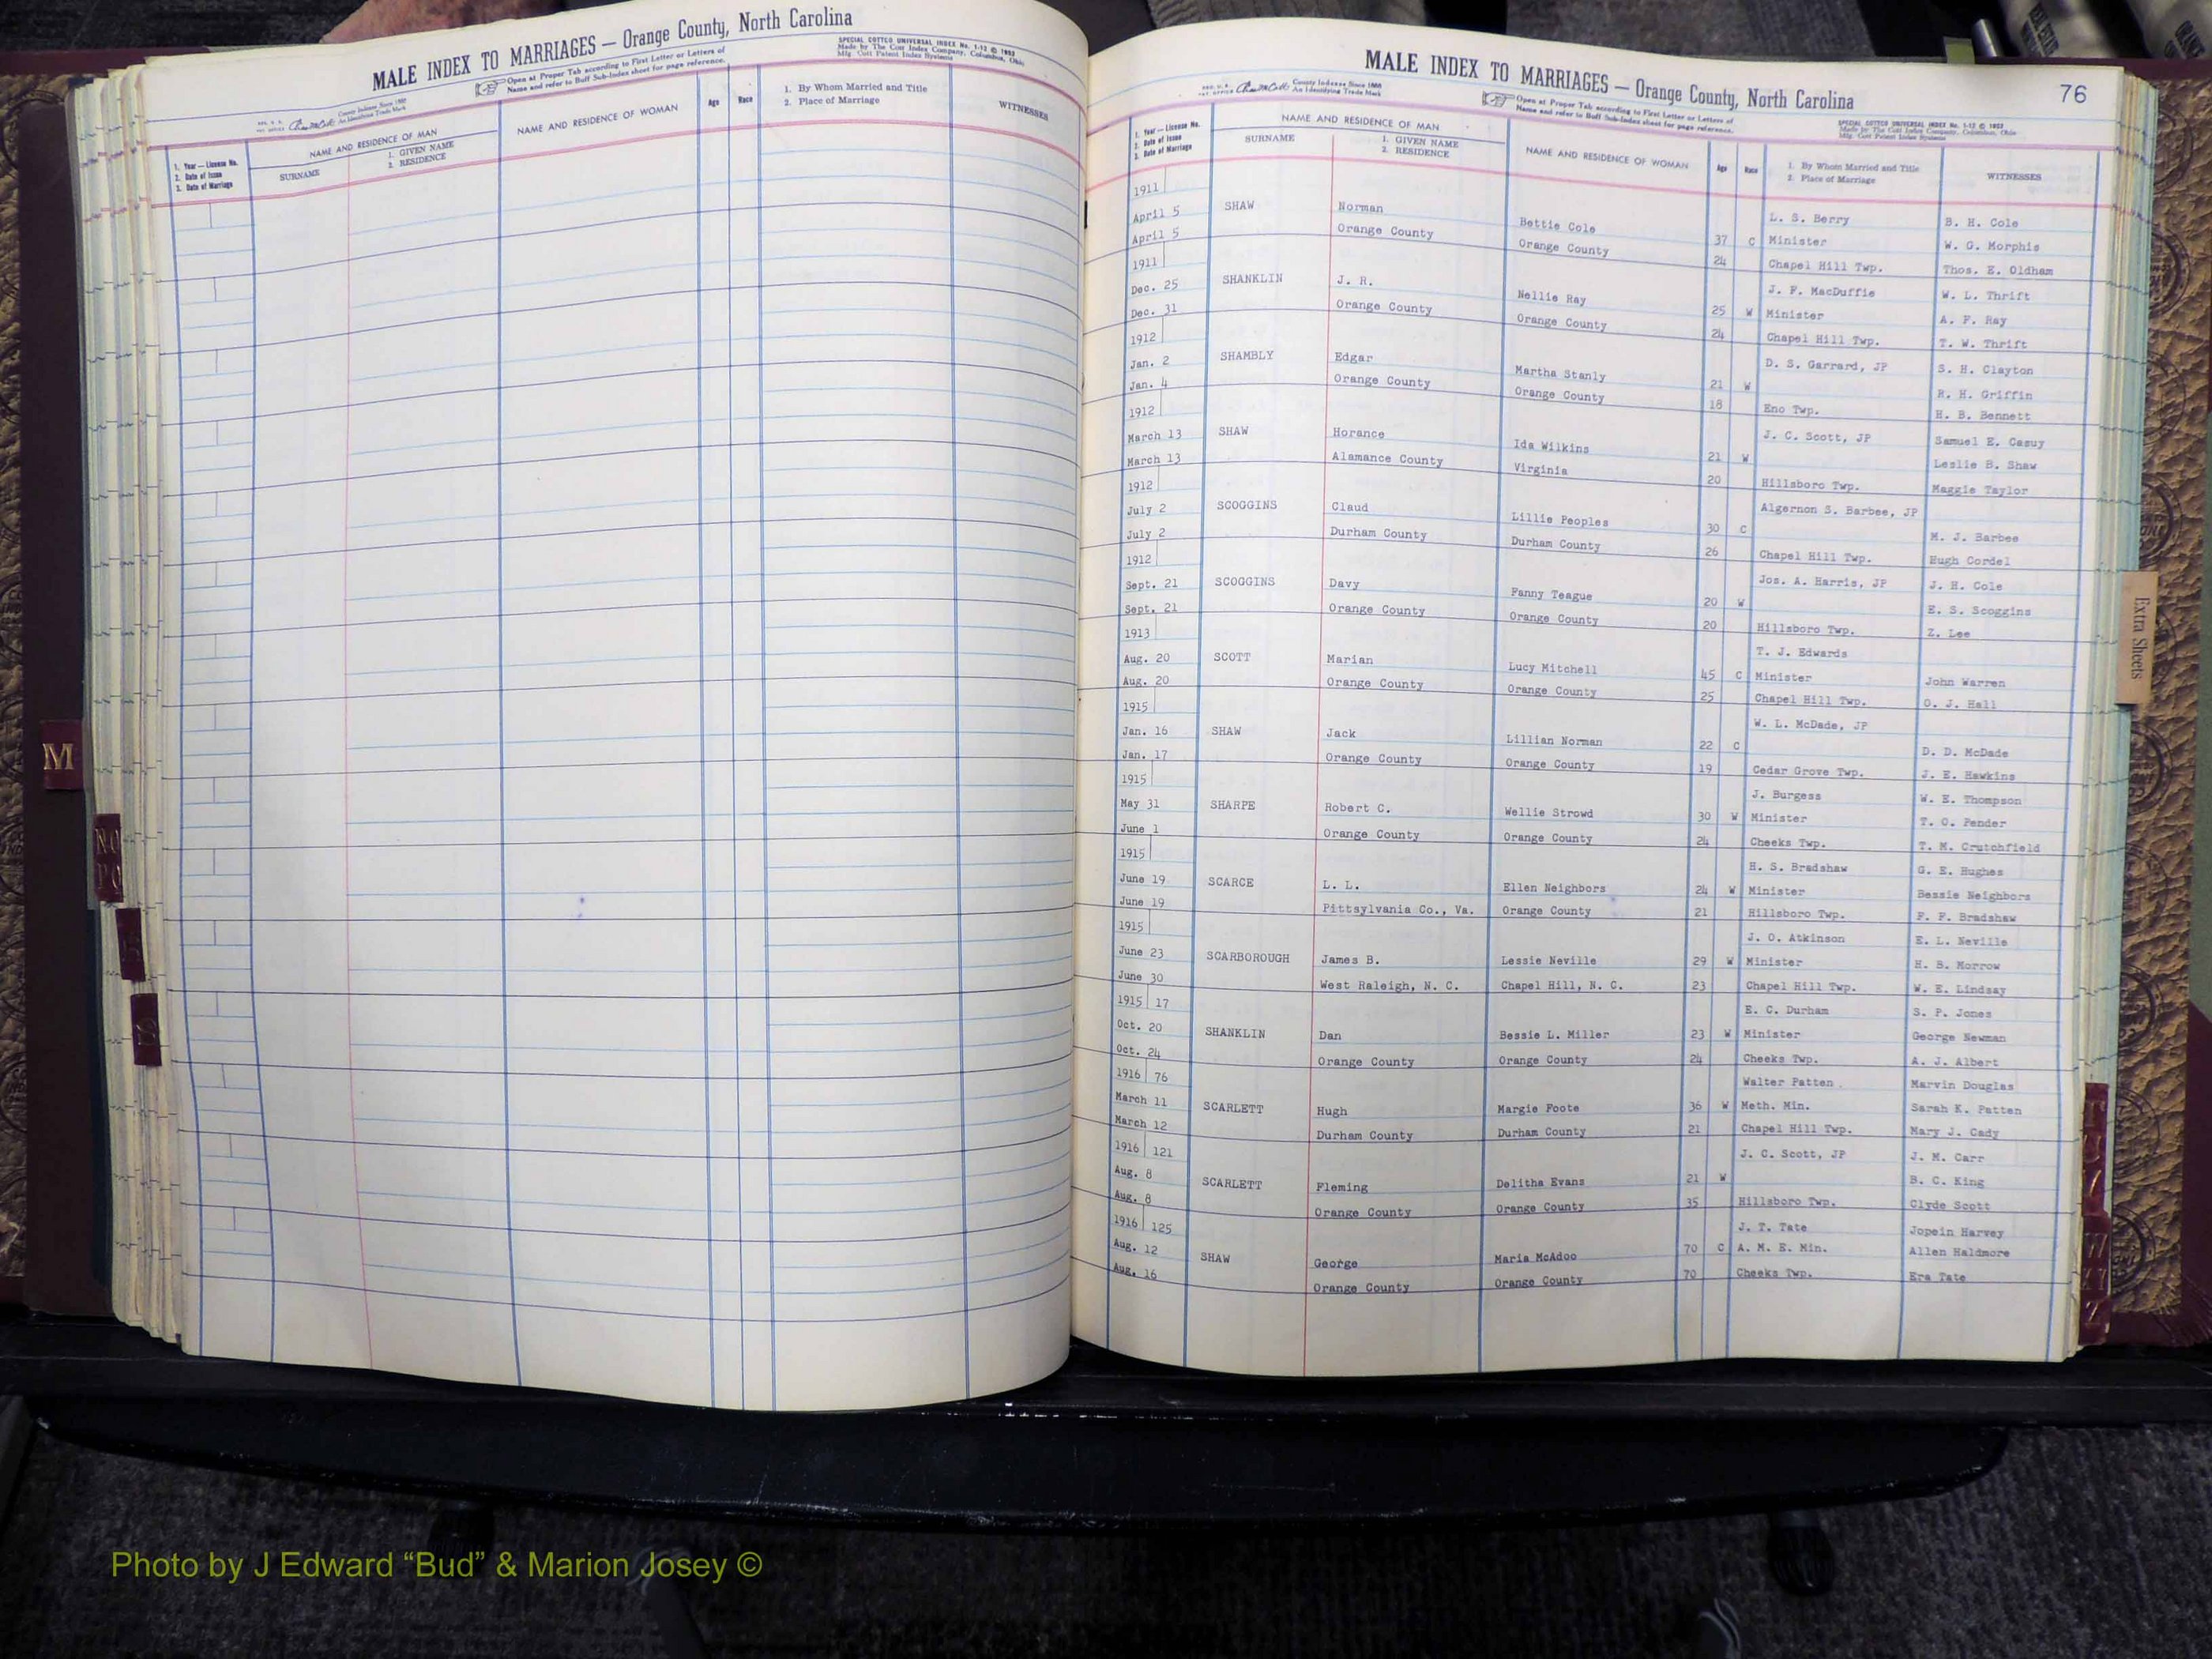 MALE INDEX TO MARRIAGES — Orange County, North Carolina
Open at Proper Tab according to First Letter or Letters of
Name and refer to Buff Sub-Index sheet for page reference.
SPECIAL COTTCO UNIVERSAL INDEX No. 1-12 © 1952
Made by The Cott Index Company, Columbus, Ohio
Mfg Cott Patent Index Systems
County Indexes Since 1888
An Identifying Trade Mark
1. Year — License No.
2. Date of Issue
3. Date of Marriage
NAME AND RESIDENCE OF MAN
SURNAME
1. GIVEN NAME
2. RESIDENCE
NAME AND RESIDENCE OF WOMAN
Age
Race
1. By Whom Married and Title
2. Place of Marriage
WITNESSES
MALE INDEX TO MARRIAGES — Orange County, North Carolina
76
County Indexes Since 1888
An Identifying Trade Mark
Open at Proper Tab according to First Letter or Letters of
Name and refer to Buff Sub-Index sheet for page reference.
SPECIAL COTTCO UNIVERSAL INDEX No. 1-12 © 1952
Made by The Cott Index Company, Columbus, Ohio
Mfg Cott Patent Index Systems
1. Year — License No.
2. Date of Issue
3. Date of Marriage
NAME AND RESIDENCE OF MAN
SURNAME
1. GIVEN NAME
2. RESIDENCE
NAME AND RESIDENCE OF WOMAN
Age
Race
1. By Whom Married and Title
2. Place of Marriage
WITNESSES
1911 L. S. Berry B. H. Cole
April 5 SHAW Norman Bettie Cole 37 C Minister W. G. Morphis
April 5 Orange County Orange County 24 Chapel Hill Twp. Thos. E. Oldham
1911 J. F. MacDuffie W. L. Thrift
Dec. 25 SHANKLIN J. R. Nellie Ray 25 W Minister A. F. Ray
Dec. 31 Orange County Orange County 24 Chapel Hill Twp. T. W. Thrift
1912 D. S. Garrard, JP S. H. Clayton
Jan. 2 SHAMBLY Edgar Martha Stanly 21 W R. H. Griffin
Jan. 4 Orange County Orange County 18 Eno Twp. H. B. Bennett
1912 J. C. Scott, JP Samuel E. Casuy
March 13 SHAW Horance Ida Wilkins 21 W Leslie B. Shaw
March 13 Alamance County Virginia 20 Hillsboro Twp. Maggie Taylor
1912 Algernon S. Barbee, JP
July 2 SCOGGINS Claud Lillie Peoples 30 C M. J. Barbee
July 2 Durham County Durham County 26 Chapel Hill Twp. Hugh Cordel
1912 Jos. A. Harris, JP J. H. Cole
Sept. 21 SCOGGINS Davy Fanny Teague 20 W E. S. Scoggins
Sept. 21 Orange County Orange County 20 Hillsboro Twp. Z. Lee
1913 T. J. Edwards
Aug. 20 SCOTT Marian Lucy Mitchell 45 C Minister John Warren
Aug. 20 Orange County Orange County 25 Chapel Hill Twp. O. J. Hall
1915 W. L. McDade, JP
Jan. 16 SHAW Jack Lillian Norman 22 C D. D. McDade
Jan. 17 Orange County Orange County 19 Cedar Grove Twp. J. E. Hawkins
1915 J. Burgess W. E. Thompson
May 31 SHARPE Robert C. Wellie Strowd 30 W Minister T. O. Pender
June 1 Orange County Orange County 24 Cheeks Twp. T. M. Crutchfield
1915 H. S. Bradshaw G. E. Hughes
June 19 SCARCE L. L. Ellen Neighbors 24 W Minister Bessie Neighbors
June 19 Pittsylvania Co., Va. Orange County 21 Hillsboro Twp. F. F. Bradshaw
1915 J. O. Atkinson E. L. Neville
June 23 SCARBOROUGH James B. Lessie Neville 29 W Minister H. S. Morrow
June 30 West Raleigh, N. C. Chapel Hill, N. C. 23 Chapel Hill Twp. W. E. Lindsay
1915 17 E. C. Durham S. P. Jones
Oct. 20 SHANKLIN Dan Bessie L. Miller 23 W Minister George Newman
Oct. 24 Orange County Orange County 24 Cheeks Twp. A. J. Albert
1916 76 Walter Patten Marvin Douglas
March 11 SCARLETT Hugh Margie Foote 36 W Meth. Min. Sarah K. Patten
March 12 Durham County Durham County 21 Chapel Hill Twp. Mary J. Cady
1916 121 J. C. Scott, JP J. M. Carr
Aug. 8 SCARLETT Fleming Delitha Evans 21 W B. C. King
Aug. 8 Orange County Orange County 35 Hillsboro Twp. Clyde Scott
1916 125 J. T. Tate Jopein Harvey
Aug. 12 SHAW George Maria McAdoo 70 C A. M. E. Min. Allen Haldmore
Aug. 16 Orange County Orange County 70 Cheeks Twp. Era Tate
Extra Sheets
M
Photo by J Edward “Bud” & Marion Josey ©